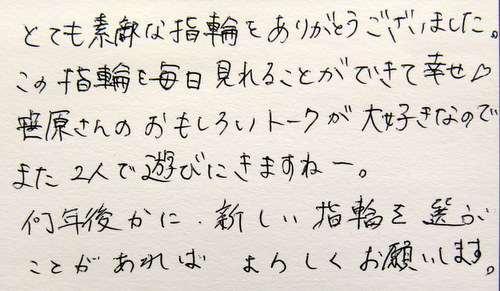 とても素敵な指輪をありがとうございました。
この指輪を毎日見れることができて幸せ♡
笹原さんのおもしろいトークが大好きなので
また2人で遊びにきますねー。
何年後かに、新しい指輪を選ぶ
ことがあれば よろしくお願いします。